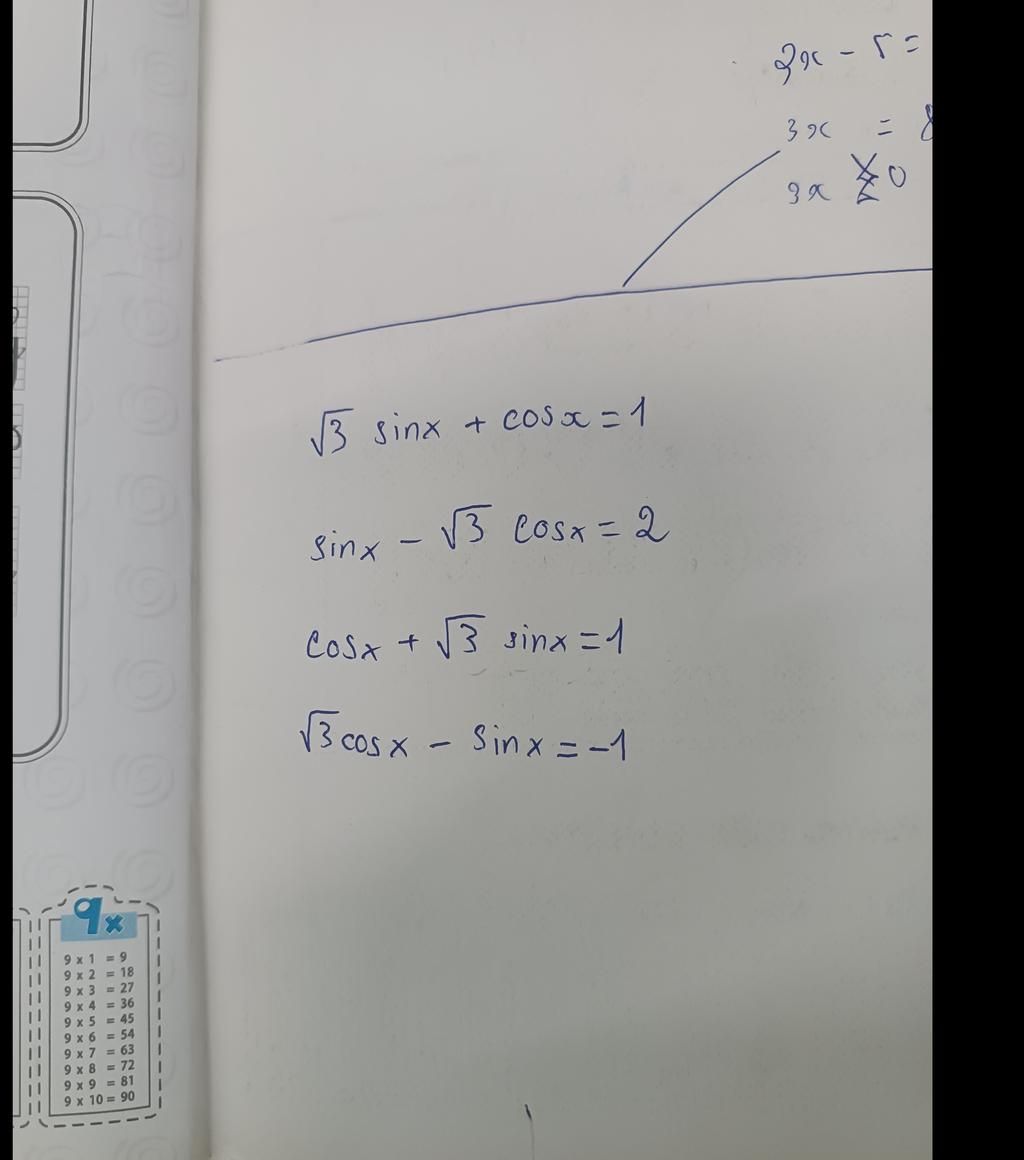 3x - 5 =
3x = 8
3x 0
√3 sinx + cosx = 1
sinx - √3 cosx = 2
cosx + √3 sinx = 1
√3 cosx - sinx = -1
9x
9 x 1 = 9
9 x 2 = 18
9 x 3 = 27
9 x 4 = 36
9 x 5 = 45
9 x 6 = 54
9 x 7 = 63
9 x 8 = 72
9 x 9 = 81
9 x 10 = 90